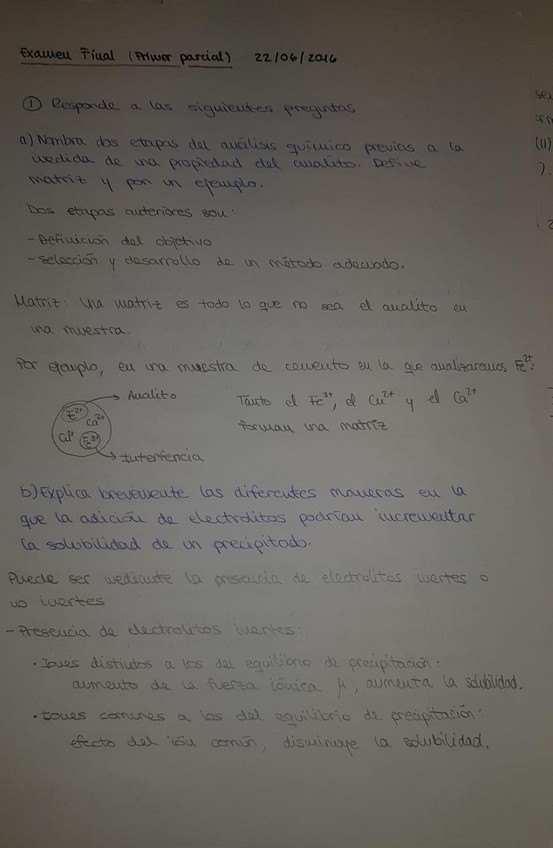 Examen Final (Primer parcial) 22/06/2016
① Responde a las siguientes preguntas
a) Nombra dos etapas del análisis químico previas a la
medida de una propiedad del analito. Define
matriz y pon un ejemplo.
Dos etapas anteriores son:
- Definición del objetivo
- Selección y desarrollo de un método adecuado.
Matriz: Una matriz es todo lo que no sea el analito en
una muestra.
Por ejemplo, en una muestra de cemento en la que analizaramos Fe²⁺:
Analito
Fe²⁺
Ca²⁺
Cu²⁺
Fe³⁺
Interferencia
Tanto el Fe³⁺, el Cu²⁺ y el Ca²⁺
forman una matriz
b) Explica brevemente las diferentes maneras en la
que la adición de electrolitos podrían incrementar
la solubilidad de un precipitado.
Puede ser mediante la presencia de electrolitos inertes o
no inertes
- Presencia de electrolitos inertes:
· Iones distintos a los del equilibrio de precipitación:
aumento de la fuerza iónica μ, aumenta la solubilidad.
· Iones comunes a los del equilibrio de precipitación:
efecto del ión común, disminuye la solubilidad.
(11)